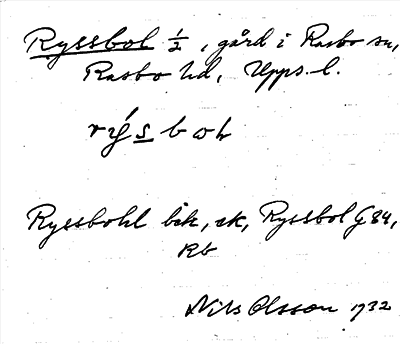 Ryssbol ½, gård i Rasbo sn,
Rasbo hd, Upps. l.
rýsbol
Ryssbohl bsk, ek, Ryssbol G 84,
Kb
Nils Olsson 1932